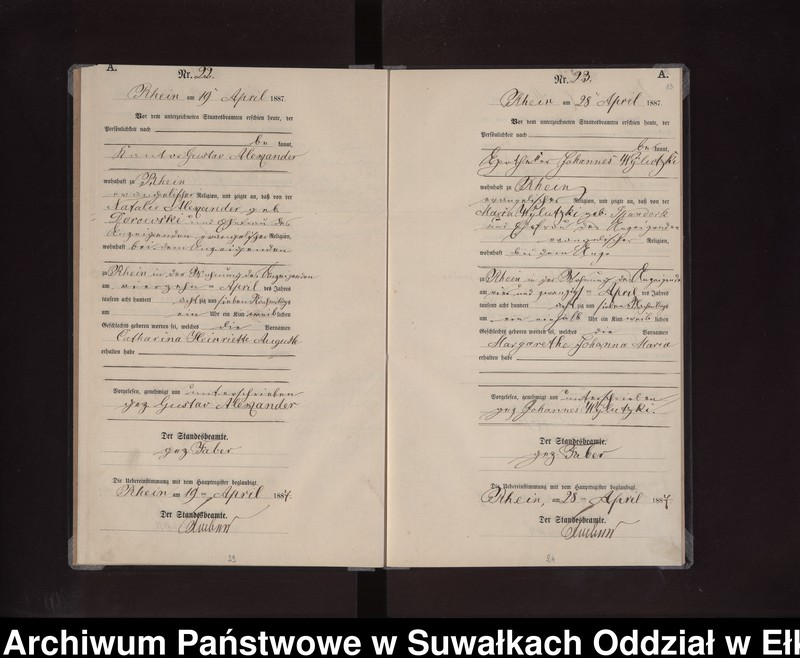 A.
Nr. 22.
Rhein am 19 April 1887.
Vor dem unterzeichneten Standesbeamten erschien heute, der
Persönlichkeit nach
be kannt,
Gustav Alexander
wohnhaft zu Rhein
evangelischer Religion, und zeigte an, daß von der
Natalie Alexander geb
Borowski Ehefrau des
Anzeigenden evangelischer Religion,
wohnhaft bei dem Anzeigenden
zu Rhein in der Wohnung des Anzeigenden
am vierzehn April des Jahres
tausend acht hundert acht zig und sieben Nachmittags
um ein Uhr ein Kind weib lichen
Geschlechts geboren worden sei, welches die Vornamen
Catharina Heinriette Auguste
erhalten habe
Vorgelesen, genehmigt und unterschrieben
gez Gustav Alexander
Der Standesbeamte.
gez Faber
Die Uebereinstimmung mit dem Hauptregister beglaubigt.
Rhein am 19 April 1887.
Der Standesbeamte.
23
Nr. 23.
A.
Rhein am 28 April 1887.
Vor dem unterzeichneten Standesbeamten erschien heute, der
Persönlichkeit nach
be kannt,
Johannes Wylutzki
wohnhaft zu Rhein
evangelischer Religion, und zeigte an, daß von der
Maria Wylutzki geb.
Ehefrau des Anzeigenden
evangelischer Religion,
wohnhaft bei dem
zu Rhein in der Wohnung des Anzeigenden
am vier und zwanzig April des Jahres
tausend acht hundert acht zig und sieben Nachmittags
um ein einhalb Uhr ein Kind weib lichen
Geschlechts geboren worden sei, welches die Vornamen
Margarethe Johanna Maria
erhalten habe
Vorgelesen, genehmigt und unterschrieben
gez Johannes Wylutzki.
Der Standesbeamte.
gez Faber
Die Uebereinstimmung mit dem Hauptregister beglaubigt.
Rhein, am 28 April 1887
Der Standesbeamte.
24
Archiwum Państwowe w Suwałkach Oddział w Ełk